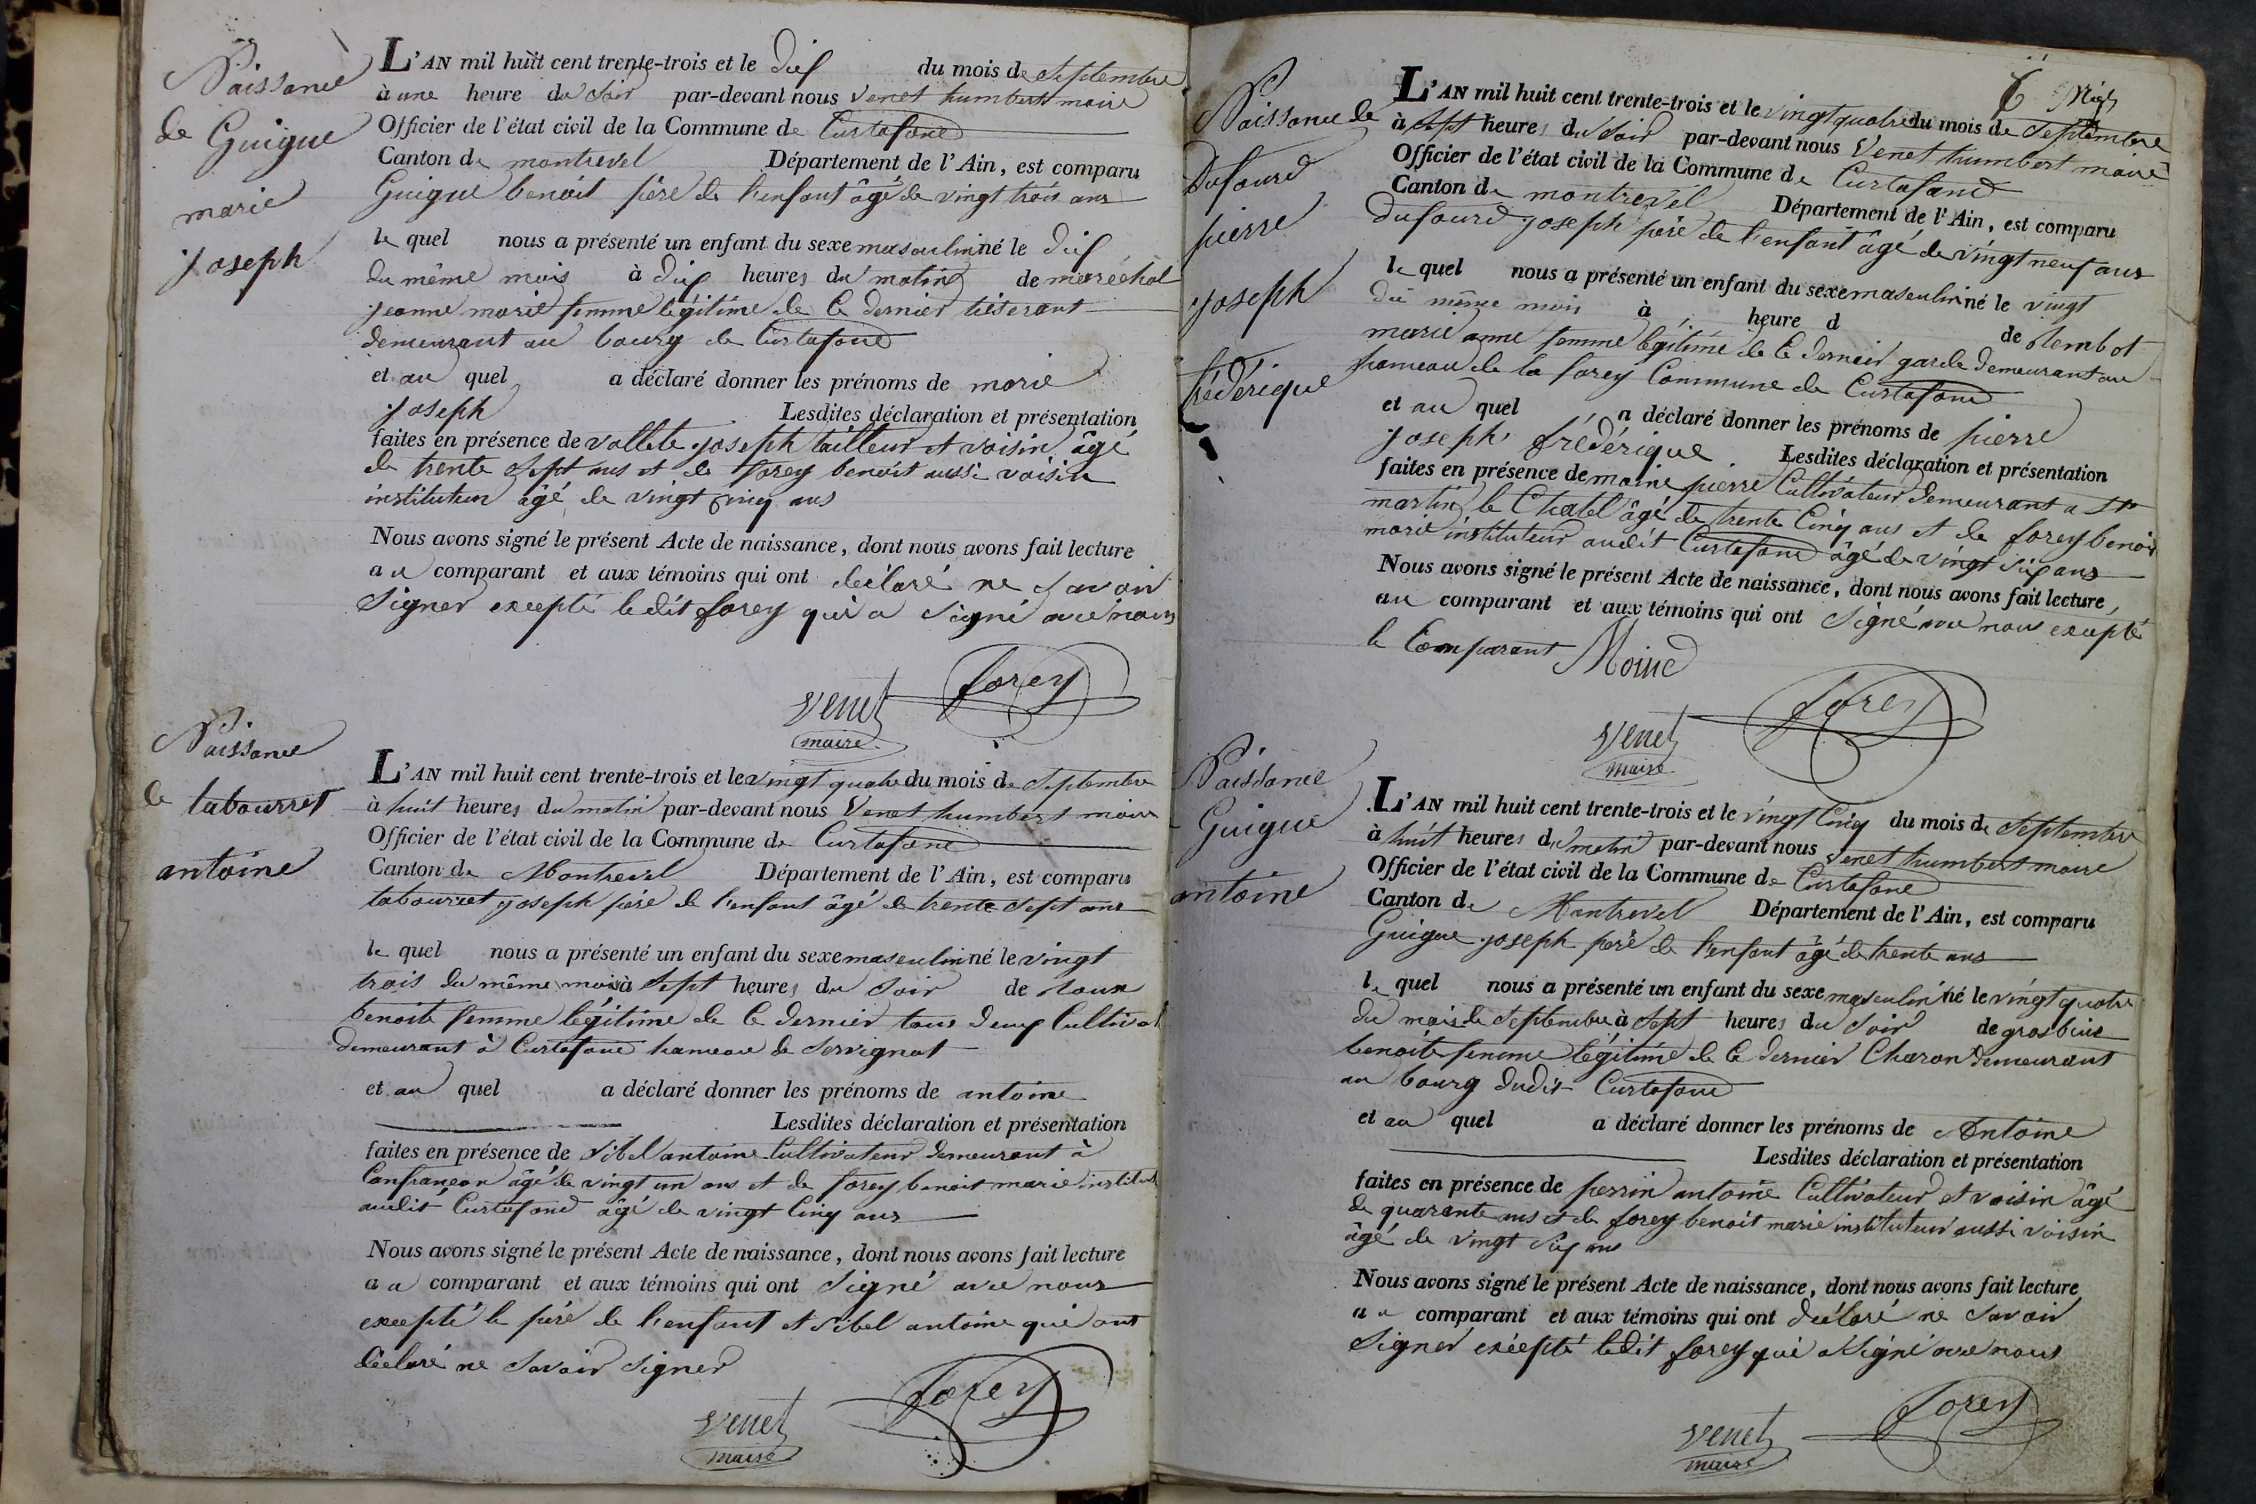 Naissance
de Guigue
marie
joseph
L'AN mil huit cent trente-trois et le dix du mois de Septembre
à une heure du Soir par-devant nous Venet humbert maire
Officier de l'état civil de la Commune de Curtafond
Canton de montrevel Département de l'Ain, est comparu
Guigue benoit père de l'enfant âgé de vingt trois ans
le quel nous a présenté un enfant du sexe masculin né le dix
du même mois à dix heures du matin de maréchal
jeanne marie femme légitime de Ce dernier tisserant
demeurant au bourg de Curtafond
et au quel a déclaré donner les prénoms de marie
joseph Lesdites déclaration et présentation
faites en présence de vollete joseph tailleur et voisin âgé
de trente Sept ans et de forey benoit aussi voisin
instituteur âgé de vingt cinq ans
Nous avons signé le présent Acte de naissance, dont nous avons fait lecture
au comparant et aux témoins qui ont déclaré ne Savoir
Signer excepté ledit forey qui a Signé avec nous
forey
Venet
maire
Naissance
de tabourret
antoine
L'AN mil huit cent trente-trois et le vingt quatre du mois de Septembre
à huit heures du matin par-devant nous Venet humbert maire
Officier de l'état civil de la Commune de Curtafond
Canton de Montrevel Département de l'Ain, est comparu
tabourret joseph père de l'enfant âgé de trente Sept ans
le quel nous a présenté un enfant du sexe masculin né le vingt
trois du même mois à Sept heures du Soir de roux
benoite femme légitime de Ce dernier tous deux Cultivat
demeurant à Curtafond hameau de Servignat
et au quel a déclaré donner les prénoms de antoine
Lesdites déclaration et présentation
faites en présence de Sibel antoine Cultivateur demeurant à
Confrançon âgé de vingt un ans et de forey benoit marie institut
audit Curtafond âgé de vingt Cinq ans
Nous avons signé le présent Acte de naissance, dont nous avons fait lecture
au comparant et aux témoins qui ont Signé avec nous
excepté le père de l'enfant et Sibel antoine qui ont
déclaré ne Savoir Signer
forey
Venet
maire
Naissance de
Dufourd
pierre
joseph
frédérique
L'AN mil huit cent trente-trois et le vingt quatre du mois de Septembre
à Sept heures du Soir par-devant nous Venet humbert maire
Officier de l'état civil de la Commune de Curtafond
Canton de montrevel Département de l'Ain, est comparu
dufourd joseph père de l'enfant âgé de vingt neuf ans
le quel nous a présenté un enfant du sexe masculin né le vingt
du même mois à heure d de rembot
marie anne femme légitime de Ce dernier garde demeurant au
hameau de la forey Commune de Curtafond
et au quel a déclaré donner les prénoms de pierre
joseph frédérique Lesdites déclaration et présentation
faites en présence de moine pierre Cultivateur demeurant a St
martin le Chatel âgé de trente Cinq ans et de forey benoit
marie instituteur audit Curtafond âgé de vingt Six ans
Nous avons signé le présent Acte de naissance, dont nous avons fait lecture
au comparant et aux témoins qui ont Signé avec nous excepté
le Comparant Moine
forey
Venet
maire
Naissance
Guigue
antoine
L'AN mil huit cent trente-trois et le vingt Cinq du mois de Septembre
à huit heures du matin par-devant nous Venet humbert maire
Officier de l'état civil de la Commune de Curtafond
Canton de Montrevel Département de l'Ain, est comparu
Guigue joseph père de l'enfant âgé de trente ans
le quel nous a présenté un enfant du sexe masculin né le vingt quatre
du mois de Septembre à Sept heures du Soir de grosbuis
benoite femme légitime de Ce dernier Charon demeurant
au bourg dudit Curtafond
et au quel a déclaré donner les prénoms de Antoine
Lesdites déclaration et présentation
faites en présence de perrin antoine Cultivateur et voisin âgé
de quarante ans et de forey benoit marie instituteur aussi voisin
âgé de vingt Six ans
Nous avons signé le présent Acte de naissance, dont nous avons fait lecture
au comparant et aux témoins qui ont déclaré ne Savoir
Signer excepté ledit forey qui a Signé avec nous
forey
Venet
maire